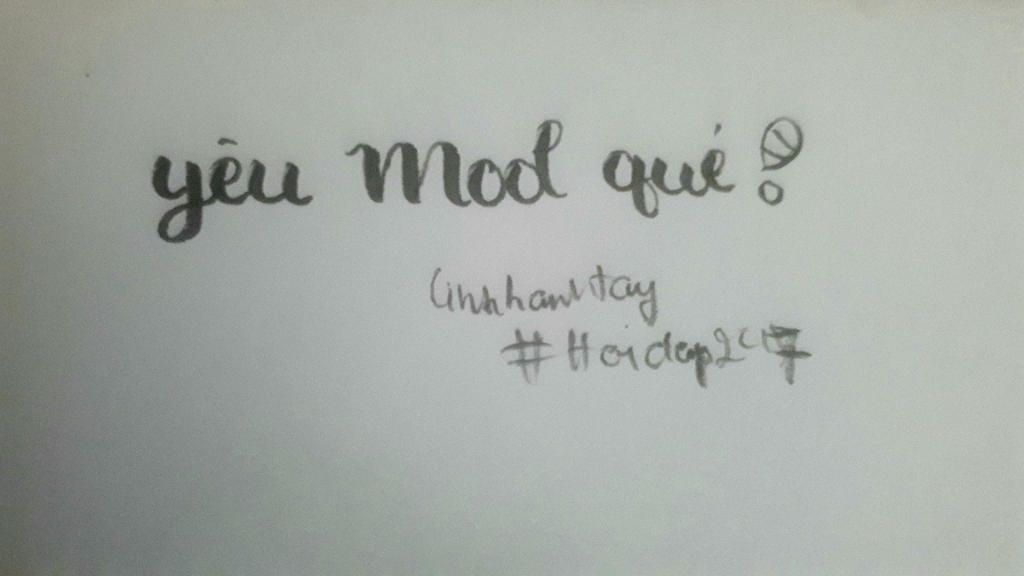 yêu Mod qué!
linhhanhtay
#Hoidap247